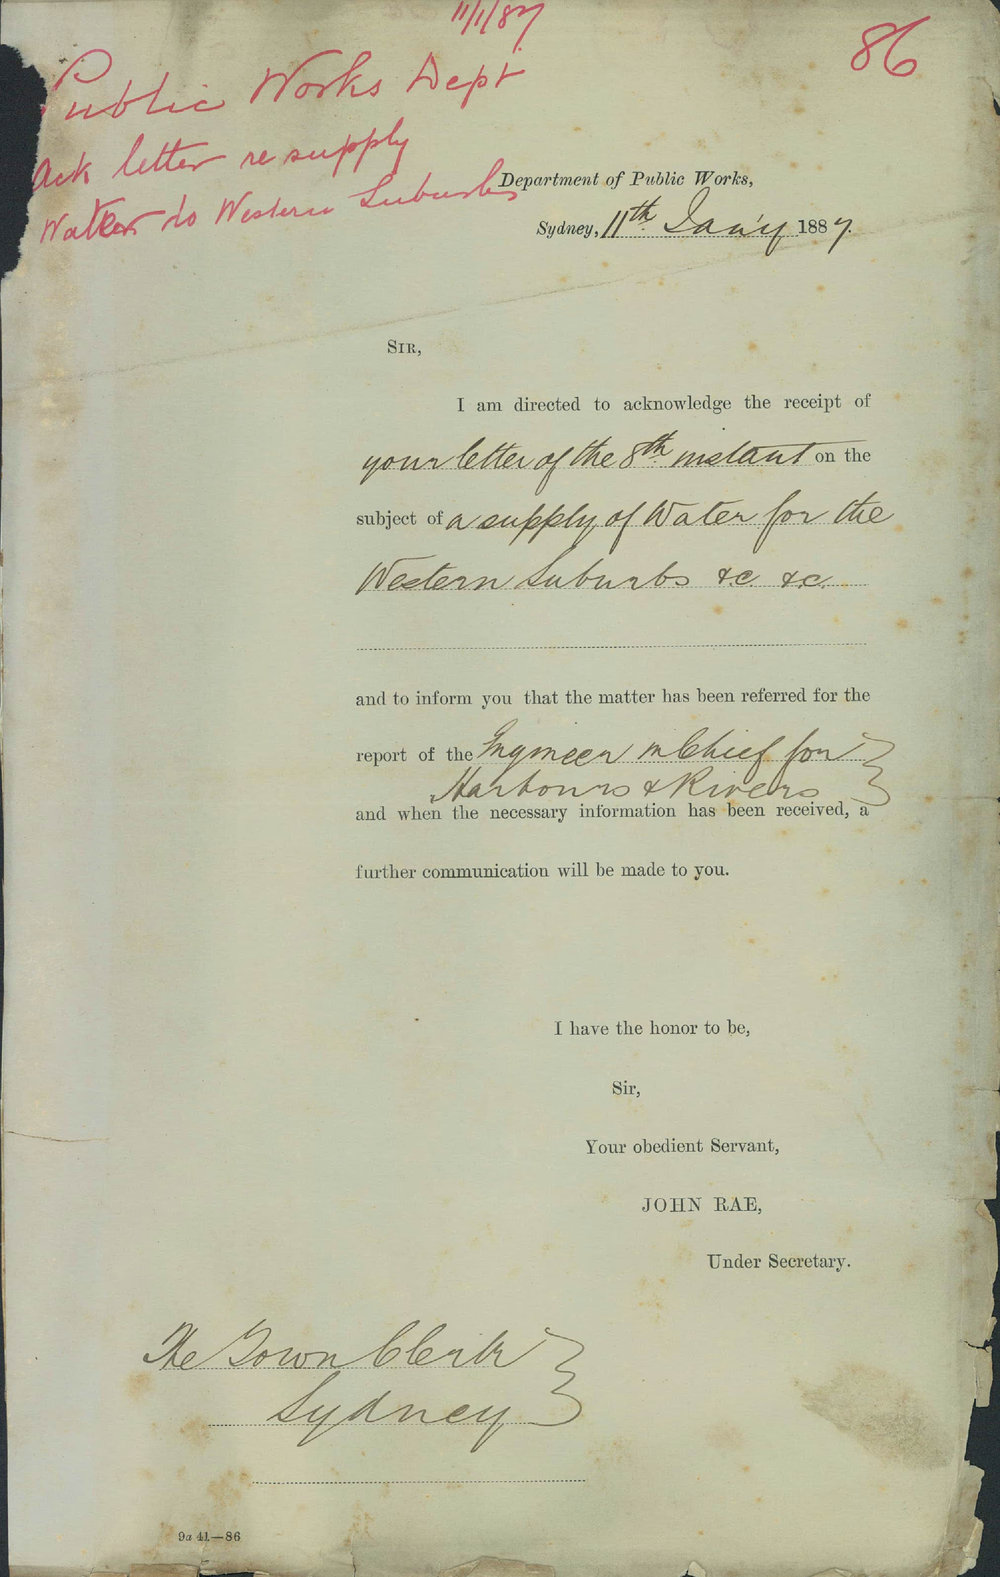 11/1/87
86
Public Works Dept
Ack letter re supply
Water to Western Suburbs
Department of Public Works,
Sydney, 11th Jan'y 1887.
SIR,
I am directed to acknowledge the receipt of
your letter of the 8th instant on the
subject of a supply of Water for the
Western Suburbs &c. &c.
and to inform you that the matter has been referred for the
report of the Engineer in Chief for
Harbours & Rivers
and when the necessary information has been received, a
further communication will be made to you.
I have the honor to be,
Sir,
Your obedient Servant,
JOHN RAE,
Under Secretary.
The Town Clerk
Sydney
9a 41—86